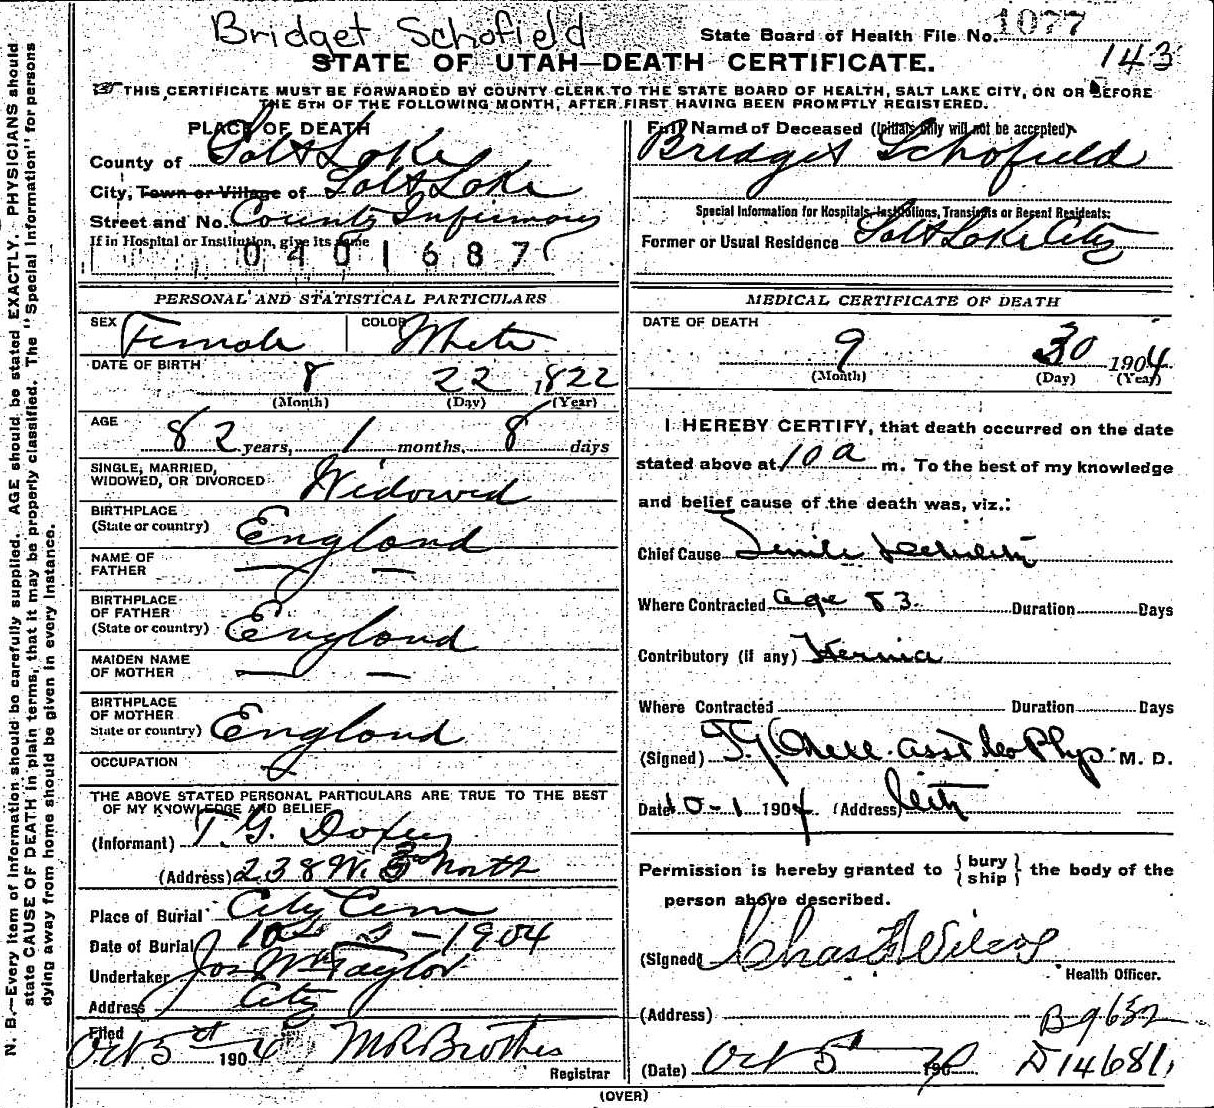 Bridget Schofield
State Board of Health File No. 1077
143
STATE OF UTAH—DEATH CERTIFICATE.
THIS CERTIFICATE MUST BE FORWARDED BY COUNTY CLERK TO THE STATE BOARD OF HEALTH, SALT LAKE CITY, ON OR BEFORE
THE 5TH OF THE FOLLOWING MONTH, AFTER FIRST HAVING BEEN PROMPTLY REGISTERED.
PLACE OF DEATH
County of Salt Lake
City, Town or Village of Salt Lake
Street and No. County Infirmary
If in Hospital or Institution, give its name
0401687
Full Name of Deceased (Initials only will not be accepted)
Bridget Schofield
Special Information for Hospitals, Institutions, Transients or Recent Residents:
Former or Usual Residence Salt Lake City
PERSONAL AND STATISTICAL PARTICULARS
SEX Female COLOR White
DATE OF BIRTH 8 22 1822
(Month) (Day) (Year)
AGE 82 years, 1 months, 8 days
SINGLE, MARRIED,
WIDOWED, OR DIVORCED Widowed
BIRTHPLACE
(State or country) England
NAME OF
FATHER — —
BIRTHPLACE
OF FATHER
(State or country) England
MAIDEN NAME
OF MOTHER — —
BIRTHPLACE
OF MOTHER
State or country) England
OCCUPATION
THE ABOVE STATED PERSONAL PARTICULARS ARE TRUE TO THE BEST
OF MY KNOWLEDGE AND BELIEF
(Informant) T. G. Doxey
(Address) 238 W. North
Place of Burial City Cem
Date of Burial 10 2 - 1904
Undertaker Jos Wm Taylor
Address City
Filed
Oct 5 1904 Registrar
MEDICAL CERTIFICATE OF DEATH
DATE OF DEATH
9 30 1904
(Month) (Day) (Year)
I HEREBY CERTIFY, that death occurred on the date
stated above at 10 a m. To the best of my knowledge
and belief cause of the death was, viz.:
Chief Cause Senile
Where Contracted age 83. Duration Days
Contributory (if any) Hernia
Where Contracted Duration Days
(Signed) asst Co Phys M. D.
Date 10-1 1904 (Address) City
Permission is hereby granted to { bury
ship } the body of the
person above described.
(Signed) Chas Wilcox
Health Officer.
(Address)
B9632
(Date) Oct 5 190
D14681
(OVER)
N. B.—Every item of information should be carefully supplied. AGE should be stated EXACTLY. PHYSICIANS should
state CAUSE OF DEATH in plain terms, that it may be properly classified. The "Special Information" for persons
dying away from home should be given in every instance.